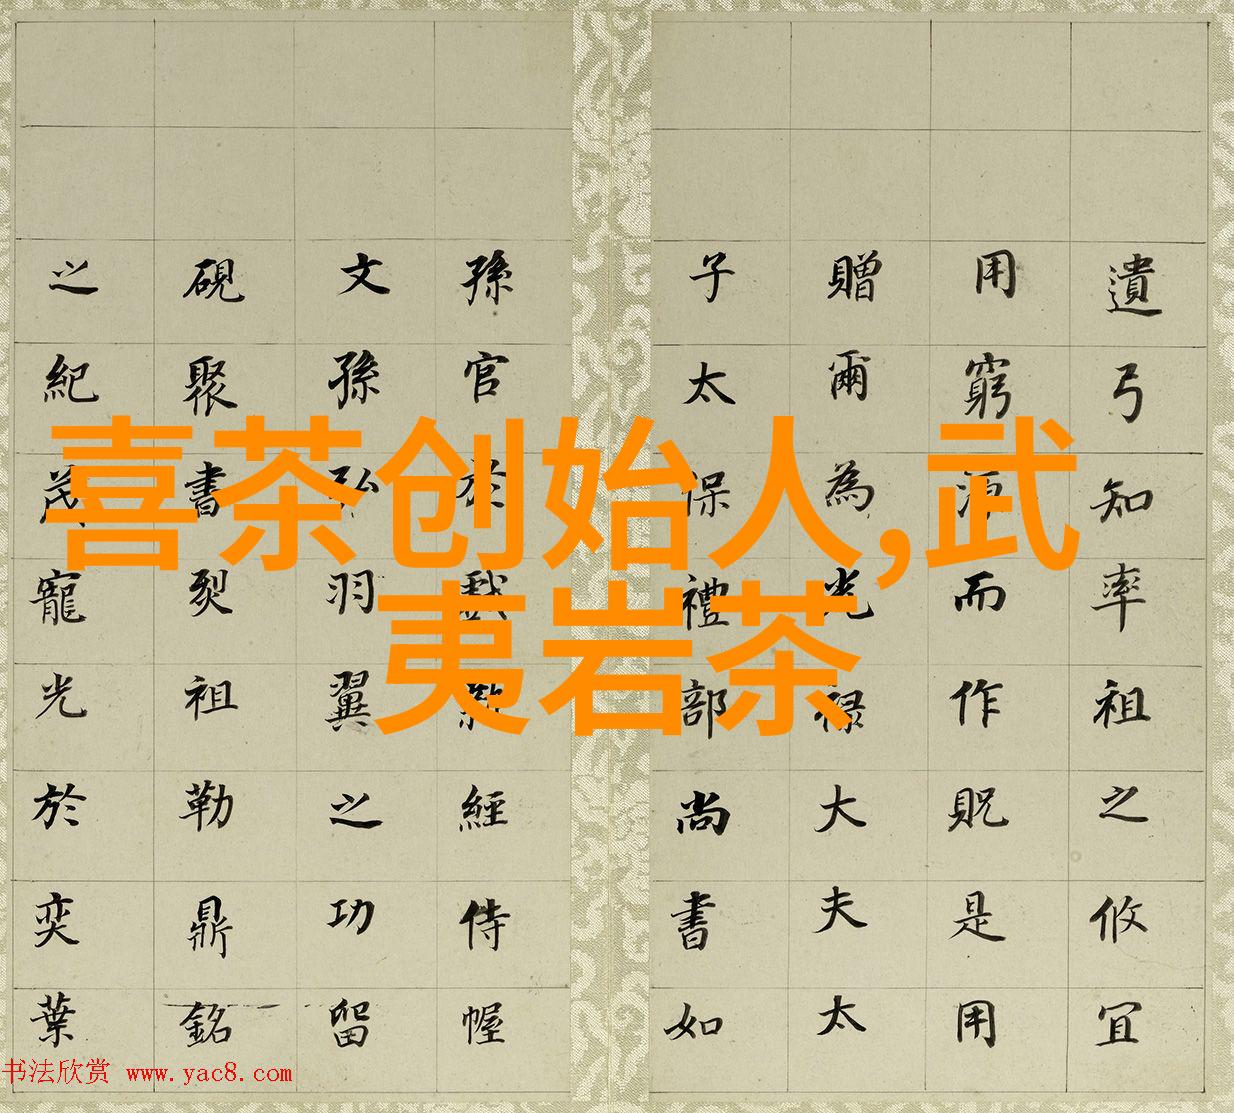 喜茶创始人,武
夷岩茶
遺弓知率祖之攸宜
用窮而作貺是用
贈爾為光祿大夫太
子太保禮部尚書如
孫官於經侍幄
文孫弘羽翼之功留
硯聚書烈祖勒鼎銘
之紀茂寵光於奕葉
书法欣赏 www.yac8.com